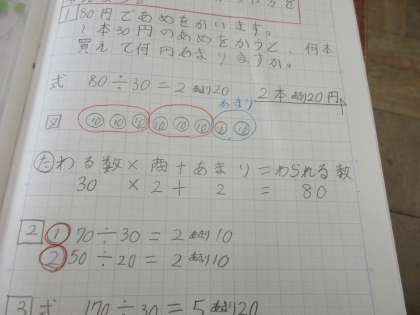 1 80円であめをかいます。
1本30円のあめをかうと、何本
買えて何円あまりますか。
式 80÷30=2あまり20
2本あまり20円
あまり
図 10 10 10 10 10 10 10 10
た わる数×商+あまり=わられる数
30×2+2=80
2 ① 70÷30=2あまり10
② 50÷20=2あまり10
3 式 170÷30=5あまり20